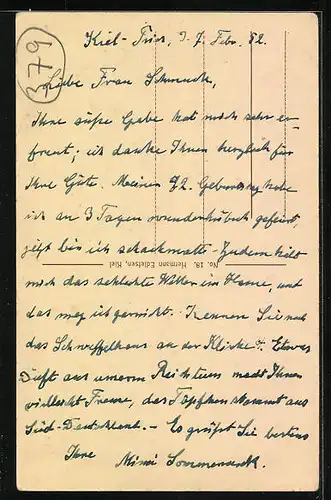 379
Kiel-          , d. 7. Febr. 52.
Liebe Frau Schwenck,
Ihre süße Gabe hat mich sehr er-
freut; ich danke Ihnen herzlich für
Ihre Güte. Meinen 72. Geburtstag habe
ich an 3 Tagen wunderhübsch gefeiert,
jetzt bin ich schachmatt. Zudem hielt
No. 18. Hermann Edlefsen, Kiel
mich das schlechte Wetter im Hause, und
das mag ich garnicht. Kennen Sie noch
das                an der           ? Etwas
Duft aus unserm Reichtum macht Ihnen
vielleicht Freude, das Töpfchen stammt aus
Süd-Deutschland. — Es grüßt Sie bestens
Ihre
Mimi